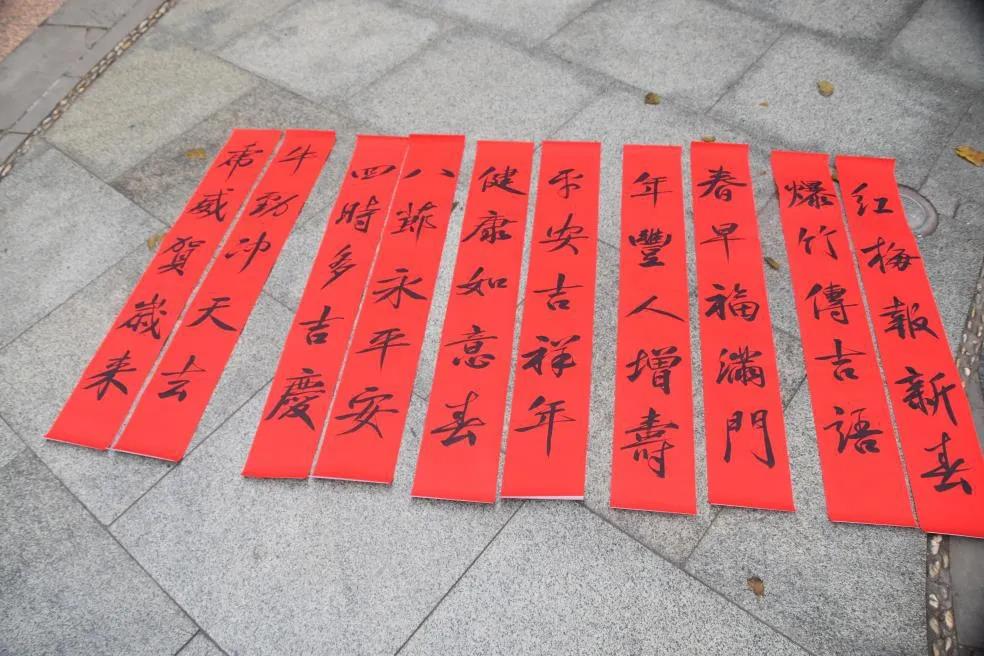 虎威賀歲来
牛劲冲天去
四時多吉慶
八節永平安
健康如意春
平安吉祥年
年豐人增壽
春早福滿門
爆竹傳吉語
红梅報新春